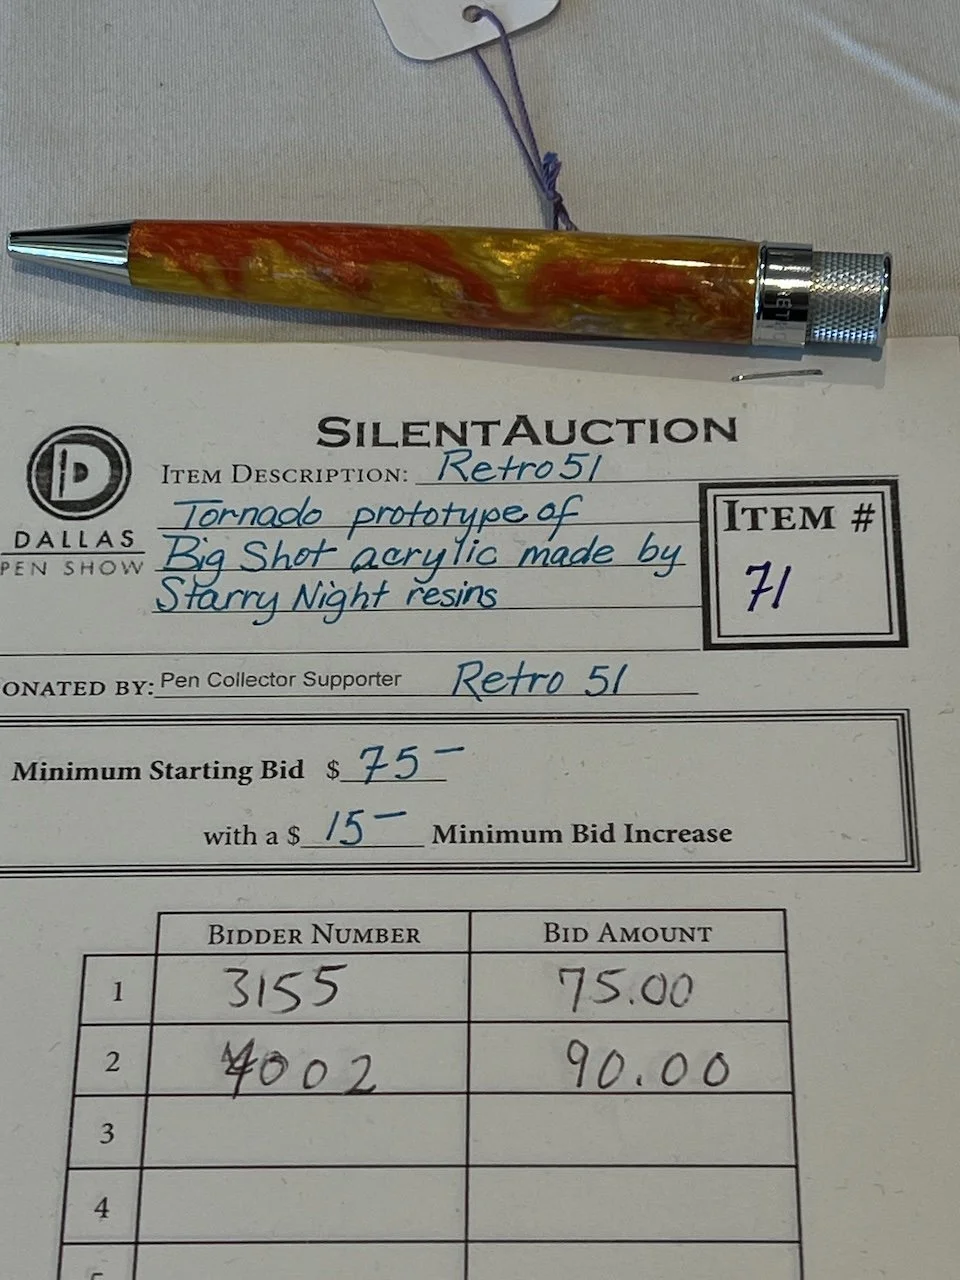 SILENT AUCTION
ITEM DESCRIPTION: Retro 51
Tornado prototype of
Big Shot acrylic made by
Starry Night resins
DALLAS
PEN SHOW
ITEM #
71
ONATED BY: Pen Collector Supporter Retro 51
Minimum Starting Bid $ 75-
with a $ 15- Minimum Bid Increase
BIDDER NUMBER BID AMOUNT
1 3155 75.00
2 4002 90.00
3
4